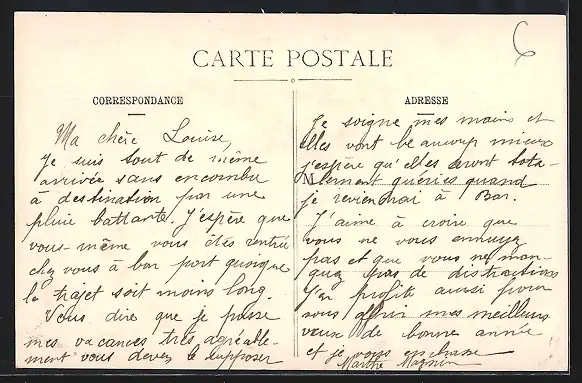 CARTE POSTALE
CORRESPONDANCE
Ma chère Louise,
Je suis tout de même
arrivée sans encombre
à destination par une
pluie battante. J'espère que
vous-même vous êtes rentrée
chez vous à bon port quoique
le trajet soit moins long.
Vous dire que je passe
mes vacances très agréable-
ment vous devez le supposer
ADRESSE
Je soigne mes mains et
elles vont beaucoup mieux
j'espère qu'elles seront tota-
M
lement guéries quand
je reviendrai à Bar.
J'aime à croire que
vous ne vous ennuyez
pas et que vous ne man-
quez pas de distractions
J'en profite aussi pour
vous offrir mes meilleurs
vœux de bonne année
et je vous embrasse
Marthe Magnin